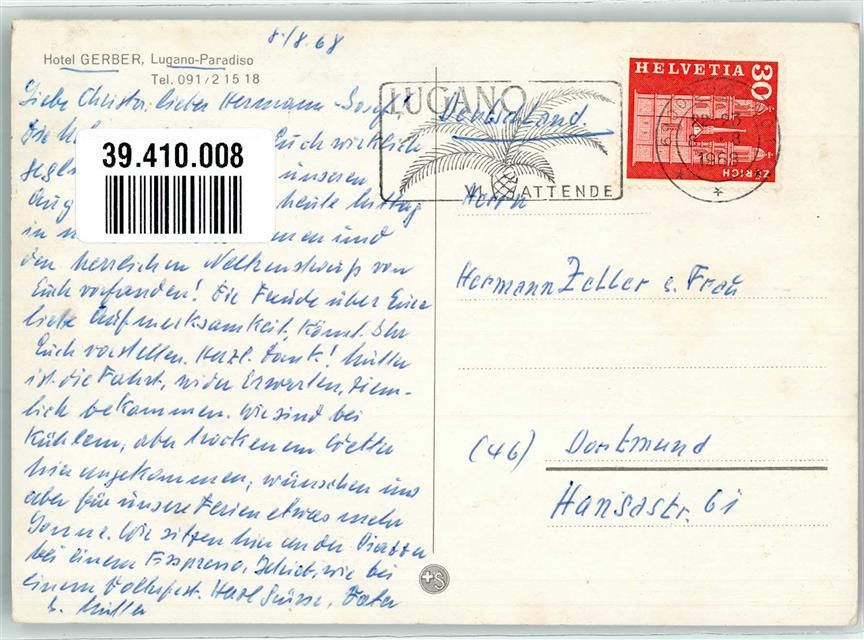 8./8.68
Hotel GERBER, Lugano-Paradiso
Tel. 091/2 15 18
Liebe Christa, lieber Hermann-Josef!
Euch wirklich
unseren
heute Mittag
in
und
den herrlichen Nelkenstrauß von
Euch vorfanden! Die Freude über Eure
liebe Aufmerksamkeit, könnt Ihr
Euch vorstellen. Herzl. Dank! Mutter
ist die Fahrt, wider Erwarten, ziem-
lich bekommen. Wir sind bei
kühlem, aber trockenem Wetter
hier angekommen, wünschen uns
aber für unsere Ferien etwas mehr
Sonne. Wir sitzen hier an der Piazza
bei einem Esspresso, wie bei
einem Volksfest. Herzl. Grüsse, Vater
u. Mutter
39.410.008
LUGANO
VI ATTENDE
HELVETIA 30
ZÜRICH
1968
Deutschland
Herrn
Hermann Zeller u. Frau
(46) Dortmund
Hansastr. 61
+S